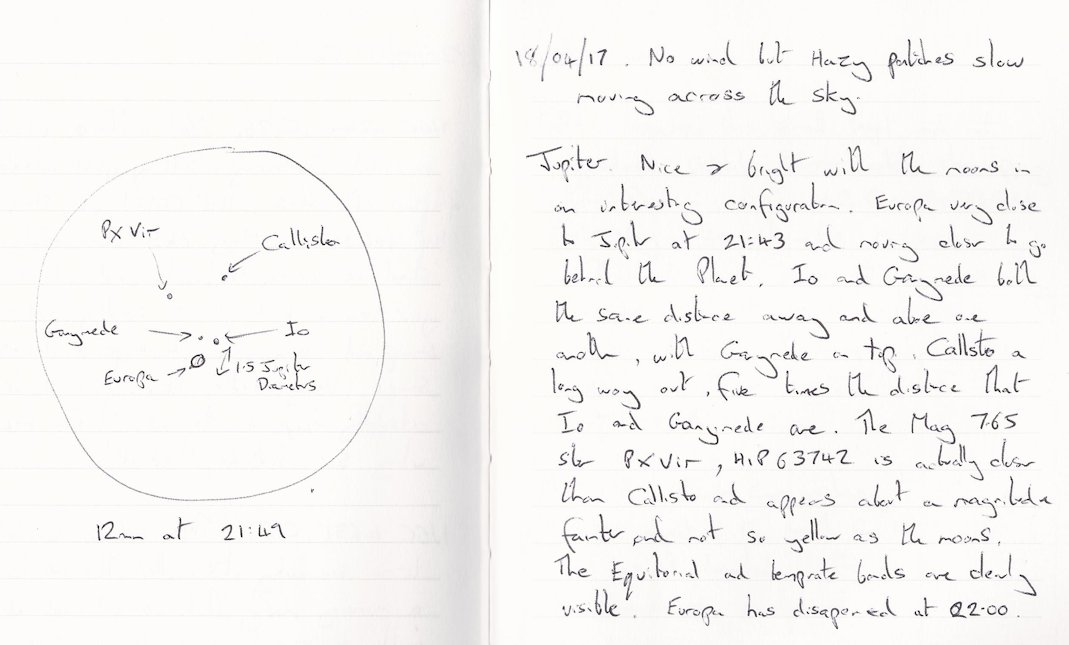 PX Vir
Callisto
Ganymede
Io
Europa
1.5 Jupiter
Diameters
12mm at 21:49
18/04/17. No wind but Hazy patches slow
moving across the sky.
Jupiter. Nice & bright with the moons in
an interesting configuration. Europa very close
to Jupiter at 21:43 and moving closer to go
behind the Planet. Io and Ganymede both
the same distance away and above one
another, with Ganymede on top. Callisto a
long way out, five times the distance that
Io and Ganymede are. The Mag 7.65
star PX Vir, HIP 63742 is actually closer
than Callisto and appears about a magnitude
fainter and not so yellow as the moons.
The Equitorial and temprate bands are clearly
visible. Europa has disapeared at 22.00.